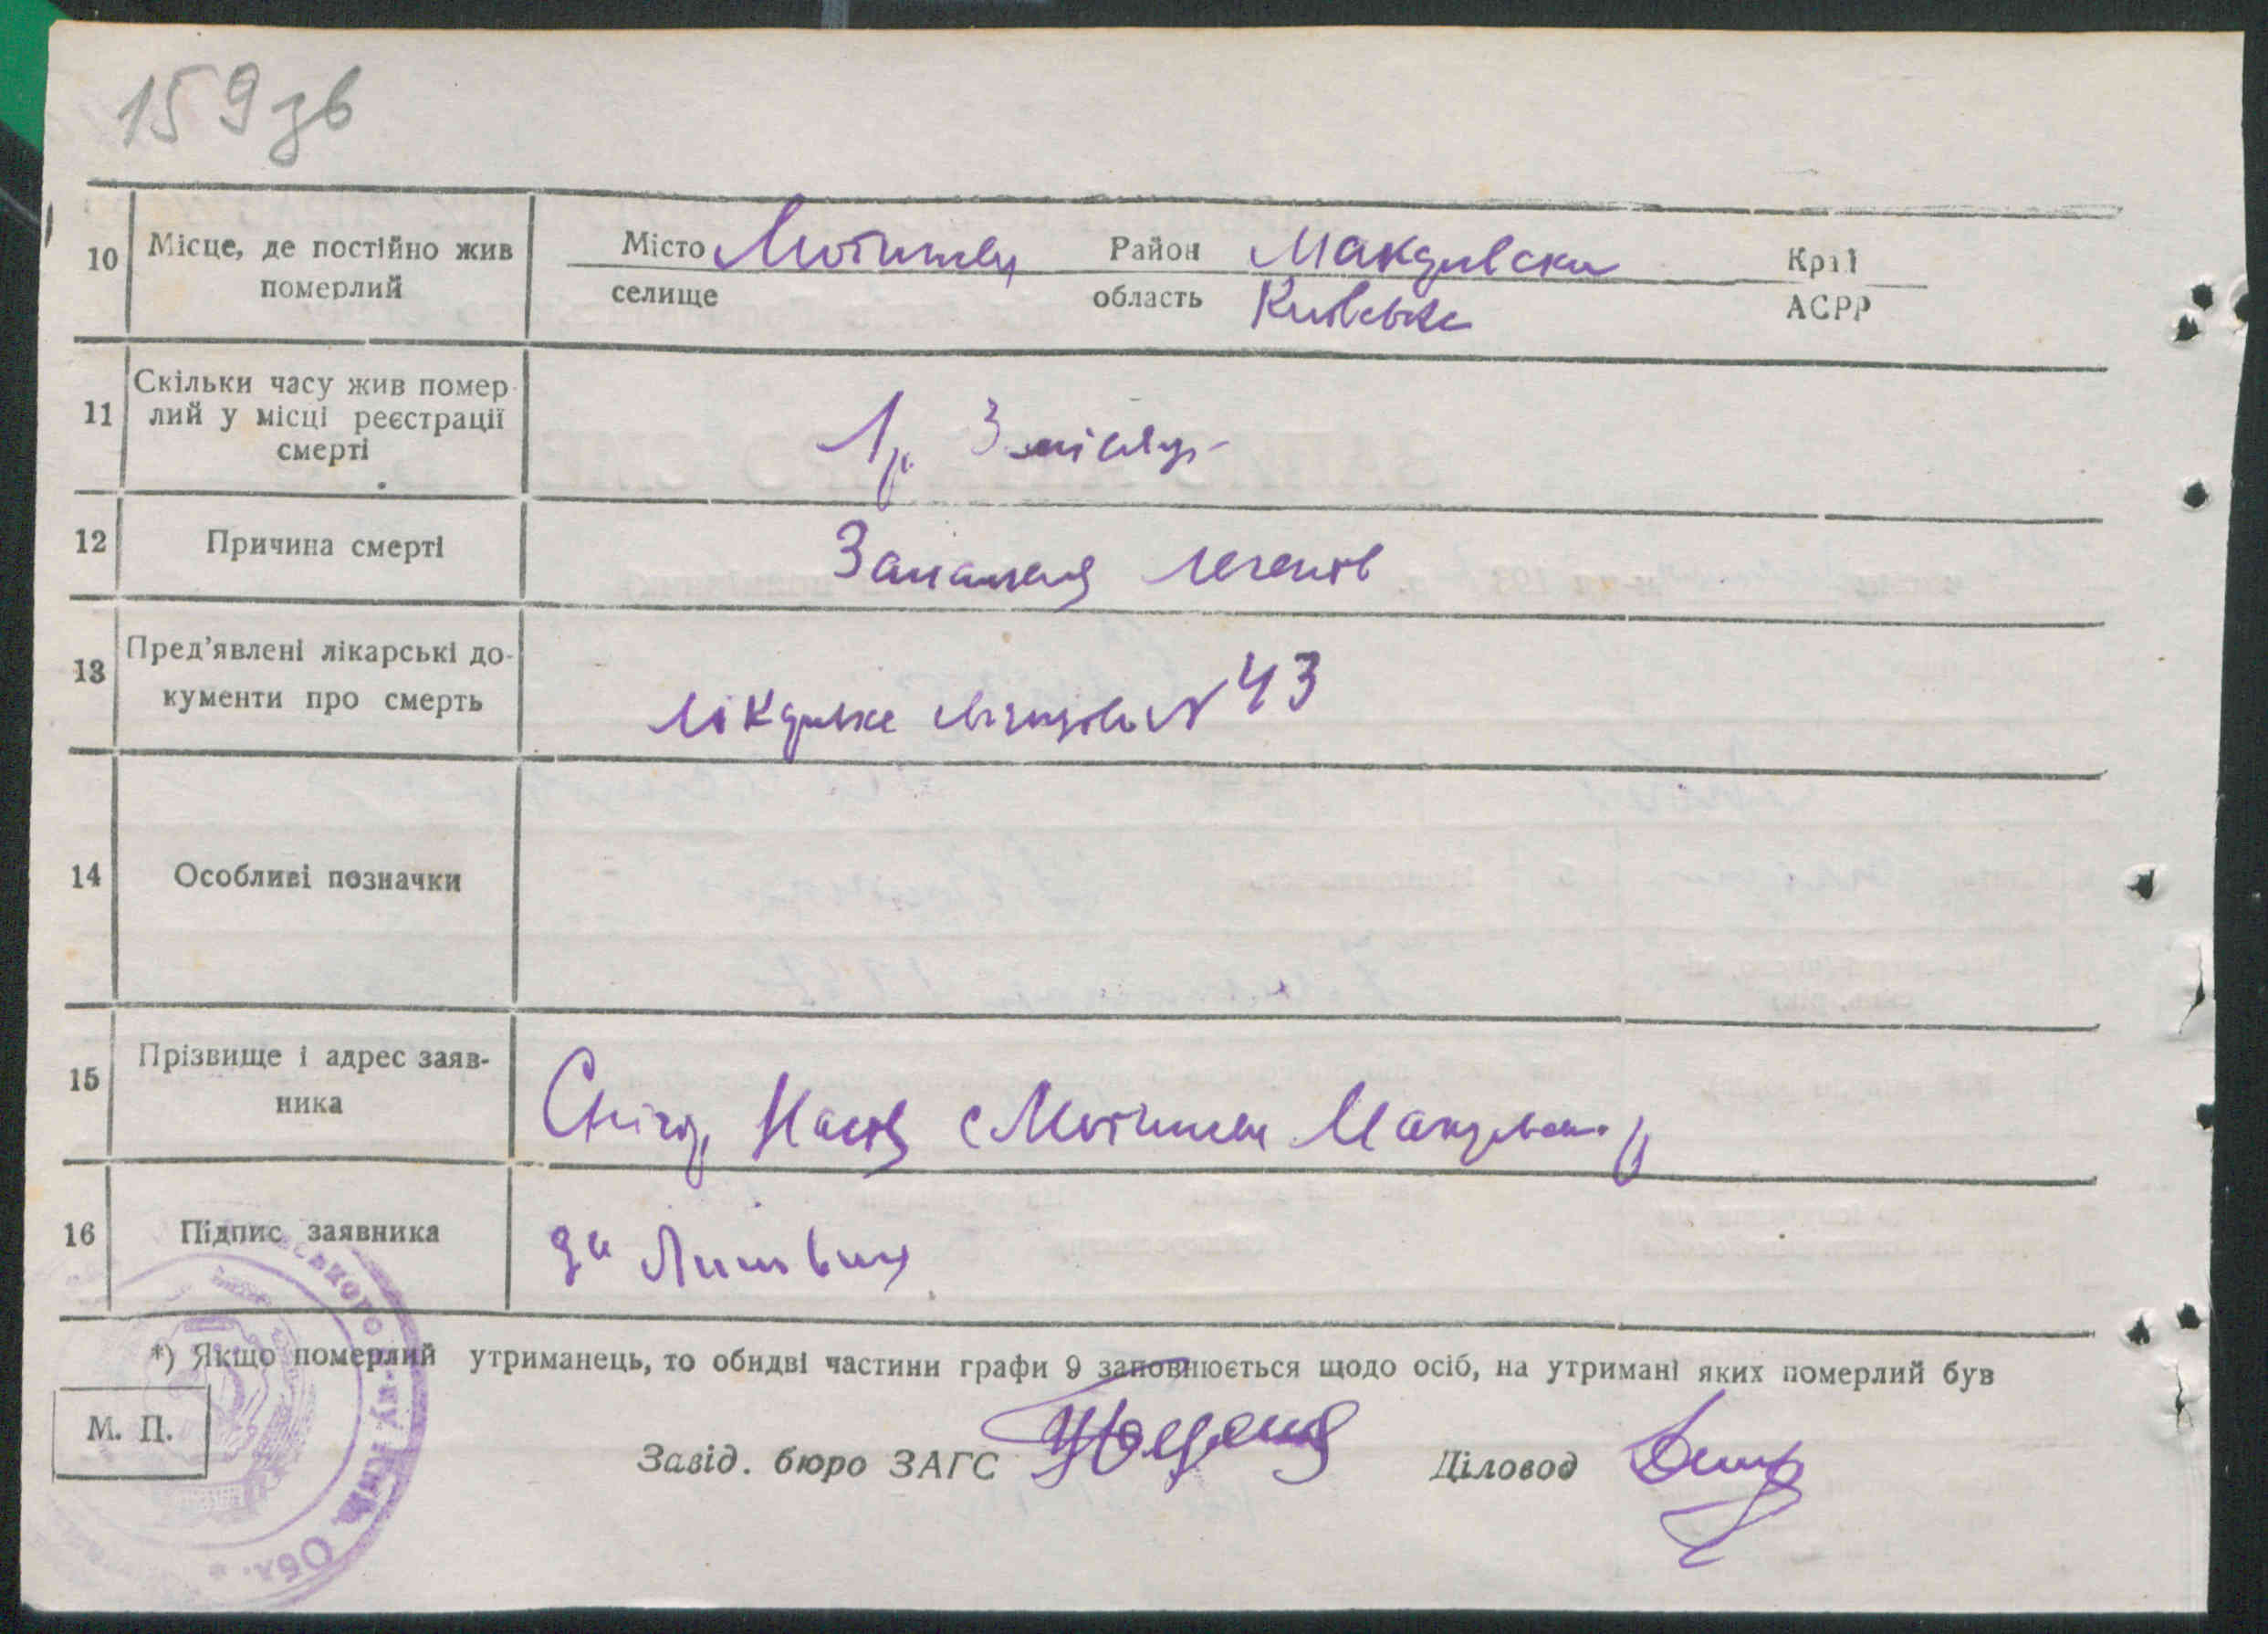 159 зв
10 Місце, де постійно жив померлий
Місто Мотижин Район Макарівськи Край
селище область Київське АСРР
11 Скільки часу жив помер-
лий у місці реєстрації
смерті
1 р. 3 місяц
12 Причина смерті Запалення легенів
13 Пред'явлені лікарські до-
кументи про смерть
Лікарське № 43
14 Особливі позначки
15 Прізвище і адрес заяв-
ника
с Мотижин Макарівськ. р
16 Підпис заявника
за Литвин
*) Якщо померлий утриманець, то обидві частини графи 9 заповнюється щодо осіб, на утримані яких померлий був
М. П.
Завід. бюро ЗАГС Діловод
Обл.